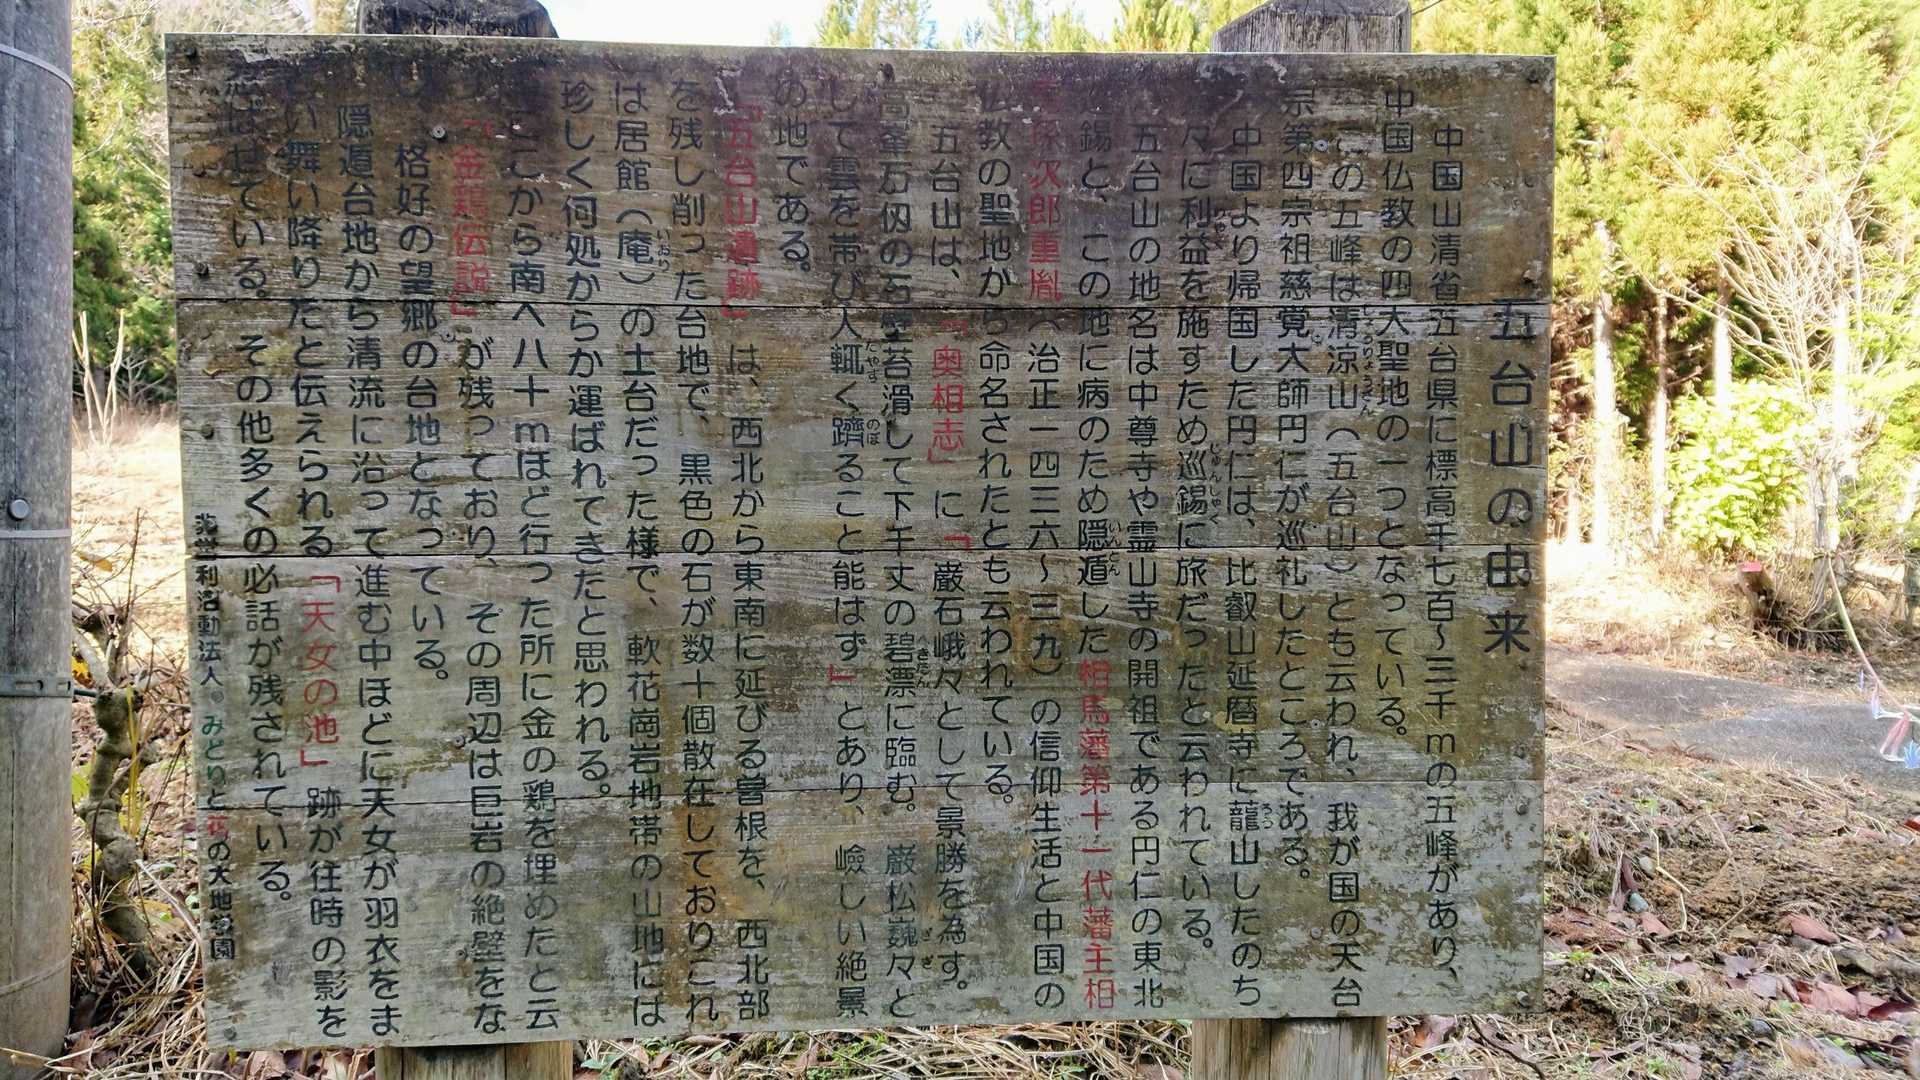 五台山の由来
中国山清省五台県に標高千七百～三千mの五峰があり、
中国仏教の四大聖地の一つとなっている。
この五峰は清涼山（五台山）とも云われ、我が国の天台
宗第四宗祖慈覚大師円仁が巡礼したところである。
中国より帰国した円仁は、比叡山延暦寺に龍山したのち
々に利益を施すため巡錫に旅だったと云われている。
五台山の地名は中尊寺や霊山寺の開祖である円仁の東北
錫と、この地に病のため隠遁した相馬藩第十一代藩主相
孫次郎重胤（治正一四三六～三九）の信仰生活と中国の
仏教の聖地から命名されたとも云われている。
五台山は、「奥相志」に「巌石峨々として景勝を為す。
高峯石仭の石壁苔滑して下千丈の碧潭に臨む。巌松巍々と
して雲を帯び人輙く躋ること能はず」とあり、嶮しい絶景
の地である。
「五台山遺跡」は、西北から東南に延びる曽根を、西北部
を残し削った台地で、黒色の石が数十個散在しておりこれ
は居館（庵）の土台だった様で、軟花崗岩地帯の山地には
珍しく何処からか運ばれてきたと思われる。
ここから南へ八十mほど行った所に金の鶏を埋めたと云
「金鶏伝説」が残っており、その周辺は巨岩の絶壁をな
し、格好の望郷の台地となっている。
隠遁台地から清流に沿って進む中ほどに天女が羽衣をま
い舞い降りたと伝えられる「天女の池」跡が往時の影を
ばせている。その他多くの必話が残されている。
利活動法人 みどりと花の大地